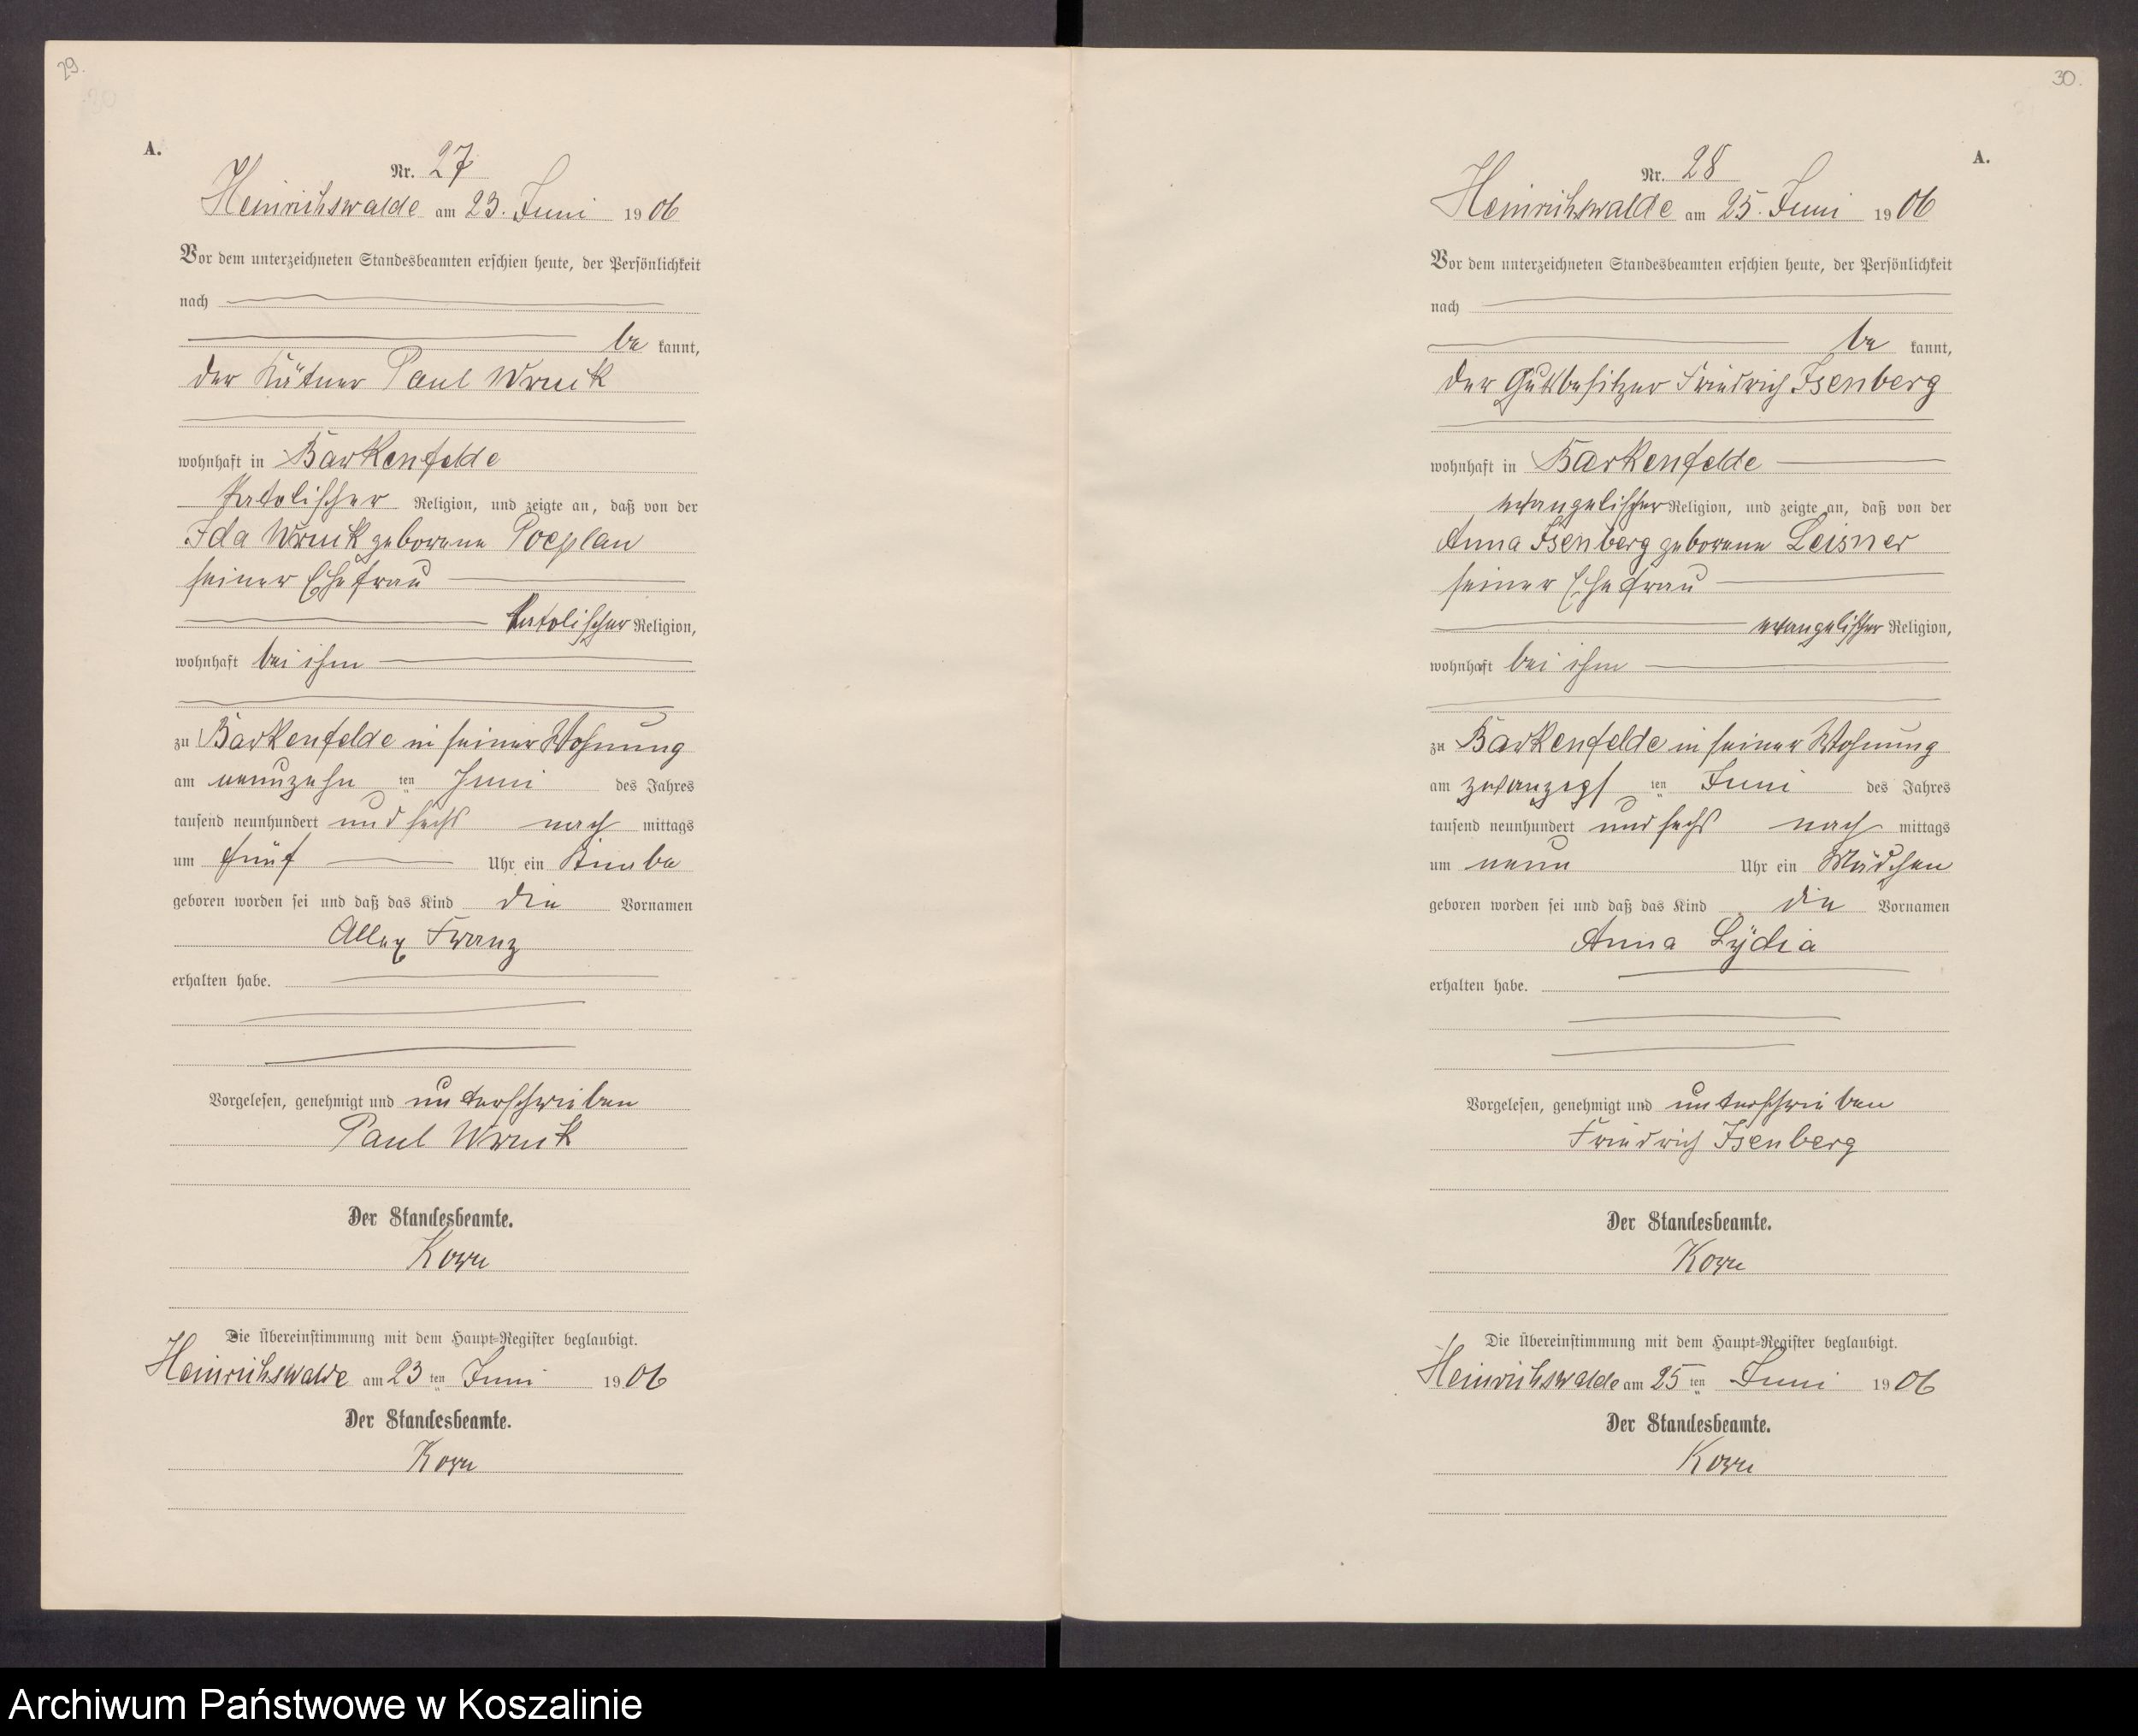 29.
A.
Nr. 27
Heinrichswalde am 23. Juni 1906
Vor dem unterzeichneten Standesbeamten erschien heute, der Persönlichkeit
nach
be kannt,
der Kätner Paul Wruck
wohnhaft in Barkenfelde
katolischer Religion, und zeigte an, daß von der
Ida Wruck geborene Poeplau
seiner Ehefrau
katolischer Religion,
wohnhaft bei ihm
zu Barkenfelde in seiner Wohnung
am neunzehn ten Juni des Jahres
tausend neunhundert und sechs nach mittags
um fünf Uhr ein Knabe
geboren worden sei und daß das Kind die Vornamen
Allex Franz
erhalten habe.
Vorgelesen, genehmigt und unterschrieben
Paul Wruck
Der Standesbeamte.
Korn
Die Übereinstimmung mit dem Haupt-Register beglaubigt.
Heinrichswalde am 23 ten Juni 1906
Der Standesbeamte.
Korn
30.
A.
Nr. 28
Heinrichswalde am 25. Juni 1906
Vor dem unterzeichneten Standesbeamten erschien heute, der Persönlichkeit
nach
be kannt,
der Gutsbesitzer Friedrich Isenberg
wohnhaft in Barkenfelde
evangelischer Religion, und zeigte an, daß von der
Anna Isenberg geborene Leisner
seiner Ehefrau
evangelischer Religion,
wohnhaft bei ihm
zu Barkenfelde in seiner Wohnung
am zwanzigs ten Juni des Jahres
tausend neunhundert und sechs nach mittags
um neun Uhr ein Mädchen
geboren worden sei und daß das Kind die Vornamen
Anna Lydia
erhalten habe.
Vorgelesen, genehmigt und unterschrieben
Friedrich Isenberg
Der Standesbeamte.
Korn
Die Übereinstimmung mit dem Haupt-Register beglaubigt.
Heinrichswalde am 25 ten Juni 1906
Der Standesbeamte.
Korn
Archiwum Państwowe w Koszalinie